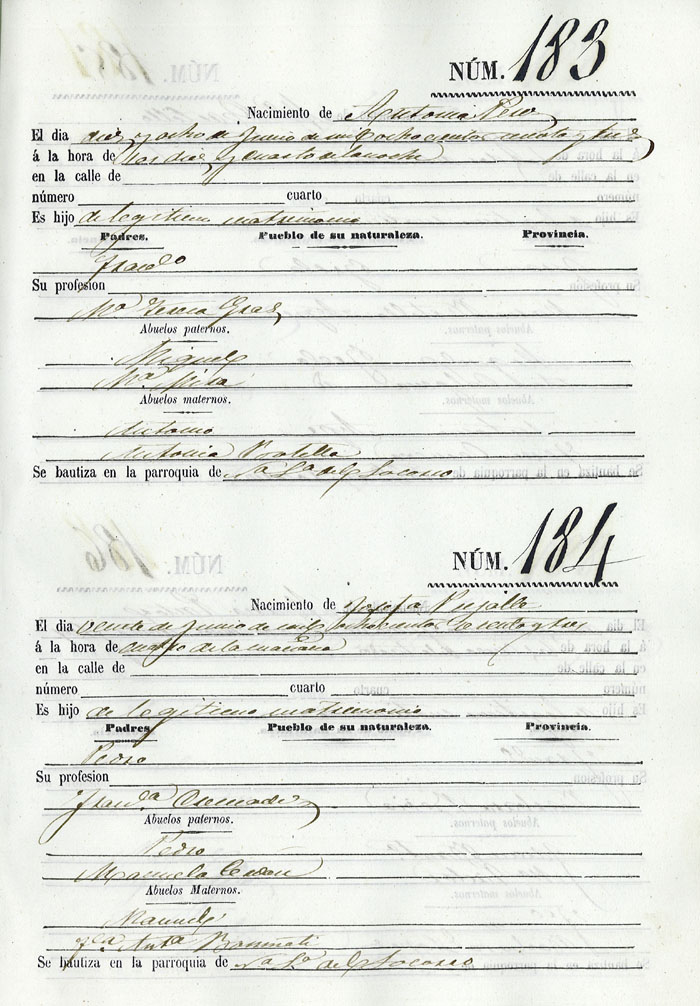 NÚM. 183
Nacimiento de Antonia Pico
El dia diez y ocho de Junio de mil ochocientos sesenta y tres
á la hora de las diez y cuarto de la noche
en la calle de
número cuarto
Es hijo de legitimo matrimonio
Padres. Pueblo de su naturaleza. Provincia.
Franco
Su profesion
Ma Teresa Gras
Abuelos paternos.
Miguel
Ma Mira
Abuelos maternos.
Antonio
Antonia
Se bautiza en la parroquia de Na Sa del Socorro
NÚM. 184
Nacimiento de Josefa
El dia veinte de Junio de mil ochocientos sesenta y tres
á la hora de cuatro de la mañana
en la calle de
número cuarto
Es hijo de legitimo matrimonio
Padres Pueblo de su naturaleza. Provincia.
Pedro
Su profesion
Franca
Abuelos paternos.
Pedro
Manuela
Abuelos Maternos.
Manuel
Anta
Se bautiza en la parroquia de Na Sa del Socorro